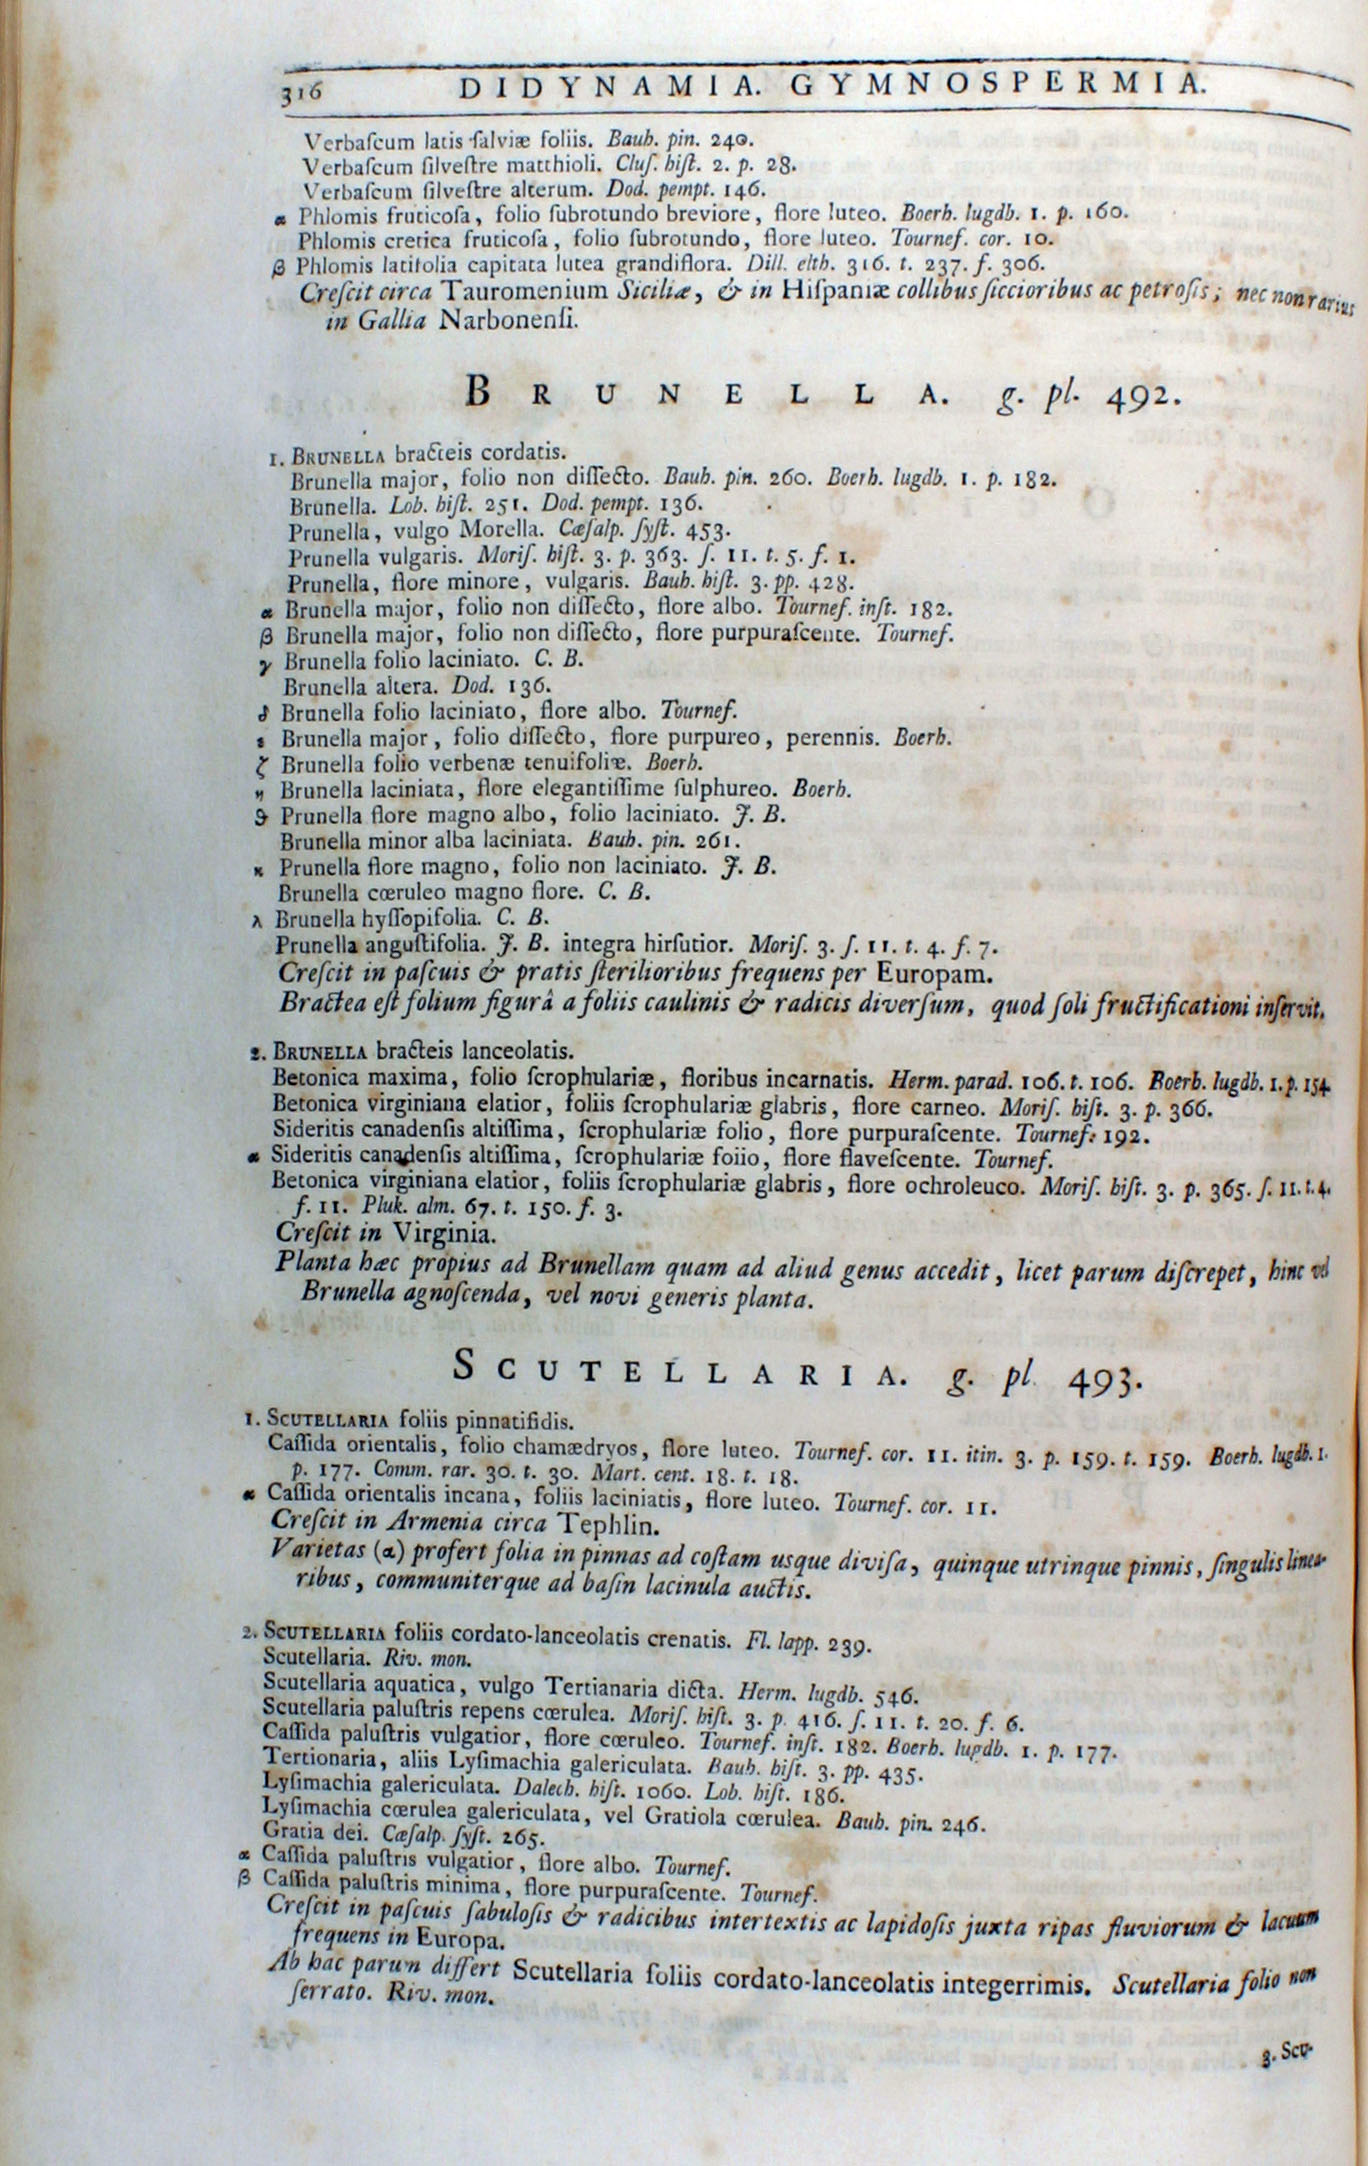 316 DIDYNAMIA. GYMNOSPERMIA.
Verbaſcum latis ſalviæ foliis. Bauh. pin. 240.
Verbaſcum ſilveſtre matthioli. Cluſ. hiſt. 2. p. 28.
Verbaſcum ſilveſtre alterum. Dod. pempt. 146.
α Phlomis fruticoſa, folio ſubrotundo breviore, flore luteo. Boerh. lugdb. 1. p. 160.
Phlomis cretica fruticoſa, folio ſubrotundo, flore luteo. Tournef. cor. 10.
β Phlomis latifolia capitata lutea grandiflora. Dill. elth. 316. t. 237. f. 306.
Creſcit circa Tauromenium Siciliæ, & in Hiſpaniæ collibus ſiccioribus ac petroſis; nec non rarius
in Gallia Narbonenſi.
BRUNELLA. g. pl. 492.
1. BRUNELLA bracteis cordatis.
Brunella major, folio non diſſecto. Bauh. pin. 260. Boerh. lugdb. 1. p. 182.
Brunella. Lob. hiſt. 251. Dod. pempt. 136.
Prunella, vulgo Morella. Cæſalp. ſyſt. 453.
Prunella vulgaris. Moriſ. hiſt. 3. p. 363. ſ. 11. t. 5. f. 1.
Prunella, flore minore, vulgaris. Bauh. hiſt. 3. pp. 428.
α Brunella major, folio non diſſecto, flore albo. Tournef. inſt. 182.
β Brunella major, folio non diſſecto, flore purpuraſcente. Tournef.
γ Brunella folio laciniato. C. B.
Brunella altera. Dod. 136.
δ Brunella folio laciniato, flore albo. Tournef.
ε Brunella major, folio diſſecto, flore purpureo, perennis. Boerh.
ζ Brunella folio verbenæ tenuifoliæ. Boerh.
η Brunella laciniata, flore elegantiſſime ſulphureo. Boerh.
ϑ Prunella flore magno albo, folio laciniato. J. B.
Brunella minor alba laciniata. Bauh. pin. 261.
κ Prunella flore magno, folio non laciniato. J. B.
Brunella cœruleo magno flore. C. B.
λ Brunella hyſſopifolia. C. B.
Prunella anguſtifolia. J. B. integra hirſutior. Moriſ. 3. ſ. 11. t. 4. f. 7.
Creſcit in paſcuis & pratis ſterilioribus frequens per Europam.
Bractea eſt folium figurâ a foliis caulinis & radicis diverſum, quod ſoli fructificationi inſervit.
2. BRUNELLA bracteis lanceolatis.
Betonica maxima, folio ſcrophulariæ, floribus incarnatis. Herm. parad. 106. t. 106. Boerh. lugdb. 1. p. 154.
Betonica virginiana elatior, foliis ſcrophulariæ glabris, flore carneo. Moriſ. hiſt. 3. p. 366.
Sideritis canadenſis altiſſima, ſcrophulariæ folio, flore purpuraſcente. Tournef. 192.
α Sideritis canadenſis altiſſima, ſcrophulariæ foiio, flore flaveſcente. Tournef.
Betonica virginiana elatior, foliis ſcrophulariæ glabris, flore ochroleuco. Moriſ. hiſt. 3. p. 365. ſ. 11. t. 4.
f. 11. Pluk. alm. 67. t. 150. f. 3.
Creſcit in Virginia.
Planta hæc propius ad Brunellam quam ad aliud genus accedit, licet parum diſcrepet, hinc vel
Brunella agnoſcenda, vel novi generis planta.
SCUTELLARIA. g. pl. 493.
1. SCUTELLARIA foliis pinnatifidis.
Caſſida orientalis, folio chamædryos, flore luteo. Tournef. cor. 11. itin. 3. p. 159. t. 159. Boerh. lugdb. 1.
p. 177. Comm. rar. 30. t. 30. Mart. cent. 18. t. 18.
α Caſſida orientalis incana, foliis laciniatis, flore luteo. Tournef. cor. 11.
Creſcit in Armenia circa Tephlin.
Varietas (α) profert folia in pinnas ad coſtam usque diviſa, quinque utrinque pinnis, ſingulis linea-
ribus, communiterque ad baſin lacinula auctis.
2. SCUTELLARIA foliis cordato-lanceolatis crenatis. Fl. lapp. 239.
Scutellaria. Riv. mon.
Scutellaria aquatica, vulgo Tertianaria dicta. Herm. lugdb. 546.
Scutellaria paluſtris repens cœrulea. Moriſ. hiſt. 3. p. 416. ſ. 11. t. 20. f. 6.
Caſſida paluſtris vulgatior, flore cœruleo. Tournef. inſt. 182. Boerh. lugdb. 1. p. 177.
Tertionaria, aliis Lyſimachia galericulata. Bauh. hiſt. 3. pp. 435.
Lyſimachia galericulata. Dalech. hiſt. 1060. Lob. hiſt. 186.
Lyſimachia cœrulea galericulata, vel Gratiola cœrulea. Bauh. pin. 246.
Gratia dei. Cæſalp. ſyſt. 265.
α Caſſida paluſtris vulgatior, flore albo. Tournef.
β Caſſida paluſtris minima, flore purpuraſcente. Tournef.
Creſcit in paſcuis ſabuloſis & radicibus intertextis ac lapidoſis juxta ripas fluviorum & lacuum
frequens in Europa.
Ab hac parum differt Scutellaria foliis cordato-lanceolatis integerrimis. Scutellaria folio non
ſerrato. Riv. mon.
3. Scu-